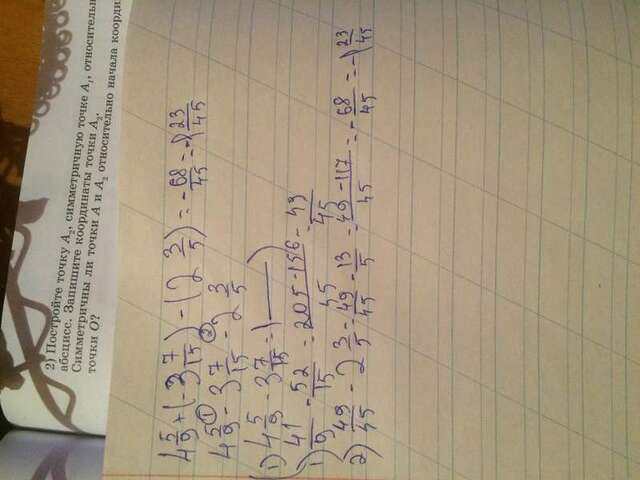 2) Постройте точку A₂, симметричную точке A₁, относительн
абсцисс. Запишите координаты точки A₂.
Симметричны ли точки A и A₂ относительно начала коорди
точки O?
4 5/9 + (-3 7/15) - (2 3/5) = - 68/45 = -1 23/45
4 5/9 - 3 7/15 - 2 3/5
1) 4 5/9 - 3 7/15 = 1
1) 41/9 - 52/15 = 205-156/45 = 49/45
2) 49/45 - 2 3/5 = 49/45 - 13/5 = 49-117/45 = - 68/45 = -1 23/45